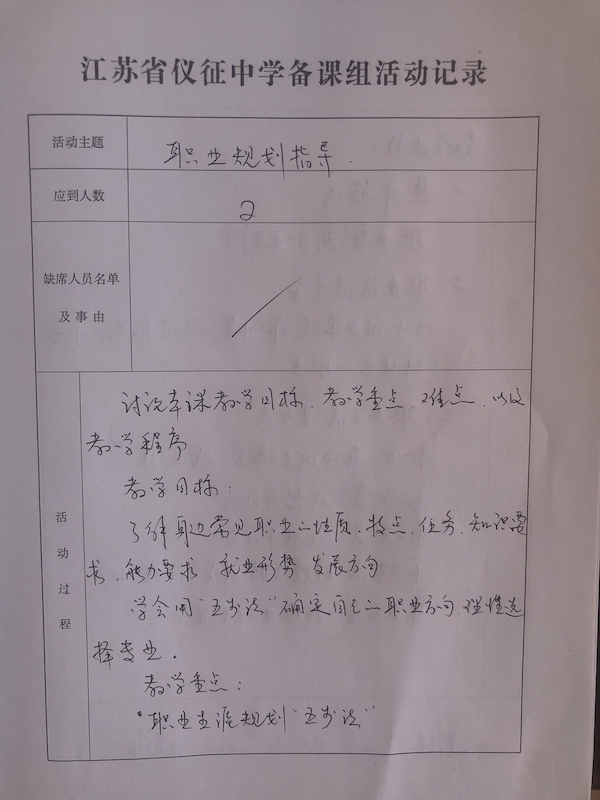 江苏省仪征中学备课组活动记录
活动主题
职业规划指导.
应到人数
2
缺席人员名单
及事由
活动过程
讨论本课教学目标、教学重点、难点、以及
教学程序
教学目标：
了解身边常见职业的性质、特点、任务、知识要
求、能力要求、就业形势、发展方向
学会用"五步法"确定自己的职业方向、理性选
择专业.
教学重点：
"职业生涯规划"五步法"